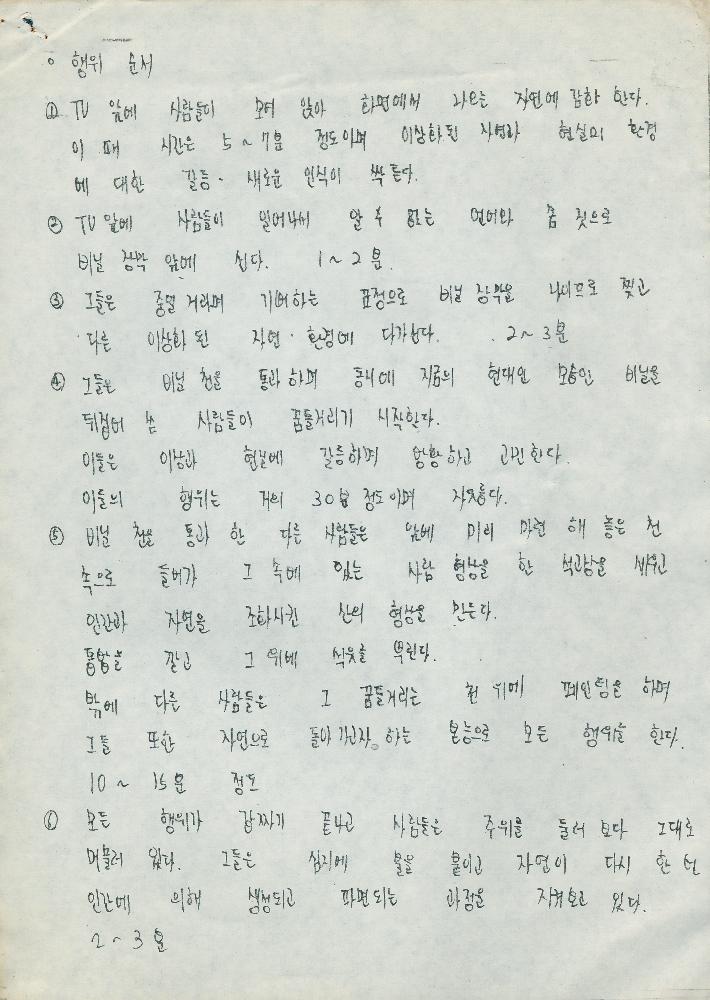 o 행위 순서
① TV 앞에 사람들이 모여 앉아 화면에서 나오는 자연에 감화 한다.
이 때 시간은 5~7분 정도이며 이상화된 자연과 현실의 환경
에 대한 갈등· 새로운 인식이 싹튼다.
② TV 앞에 사람들이 일어나서 알 수 없는 언어와 몸짓으로
비닐 장막 앞에 선다. 1~2분.
③ 그들은 중얼거리며 기어하는 표정으로 비닐 장막을 나이프로 찢고
다른 이상화 된 자연·환경에 다가선다. 2~3분
④ 그들은 비닐 천을 통과하며 동시에 지금의 현대인 모습인 비닐을
뒤집어 쓴 사람들이 꿈틀거리기 시작한다.
이들은 이상과 현실에 갈등하며 방황하고 고민한다.
이들의 행위는 거의 30분 정도이며 자유롭다.
⑤ 비닐 천을 통과 한 다른 사람들은 앞에 미리 마련 해 놓은 천
속으로 들어가 그 속에 있는 사람 형상을 한 석고상을 세우고
인간과 자연을 조화시킨 산의 형상을 만든다.
깔고 그 위에 뿌린다.
밖에 다른 사람들은 그 꿈틀거리는 천 위에 페인팅을 하며
그들 또한 자연으로 돌아가고자 하는 본능으로 모든 행위를 한다.
10~15분 정도
⑥ 모든 행위가 갑자기 끝나고 사람들은 주위를 둘러 보다 그대로
머물러 있다. 그들은 심지에 불을 붙이고 자연이 다시 한 번
인간에 의해 생성되고 파면되는 과정을 지켜보고 있다.
2~3분